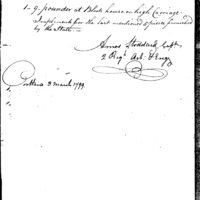 1- 9. pounder at Block house on high Carriage
Implements for the last mentioned 5 pieces furnished
by the State.
Amos Stoddard, Capt
2 Regt Art. & Engrs
Portland 3 March 1799